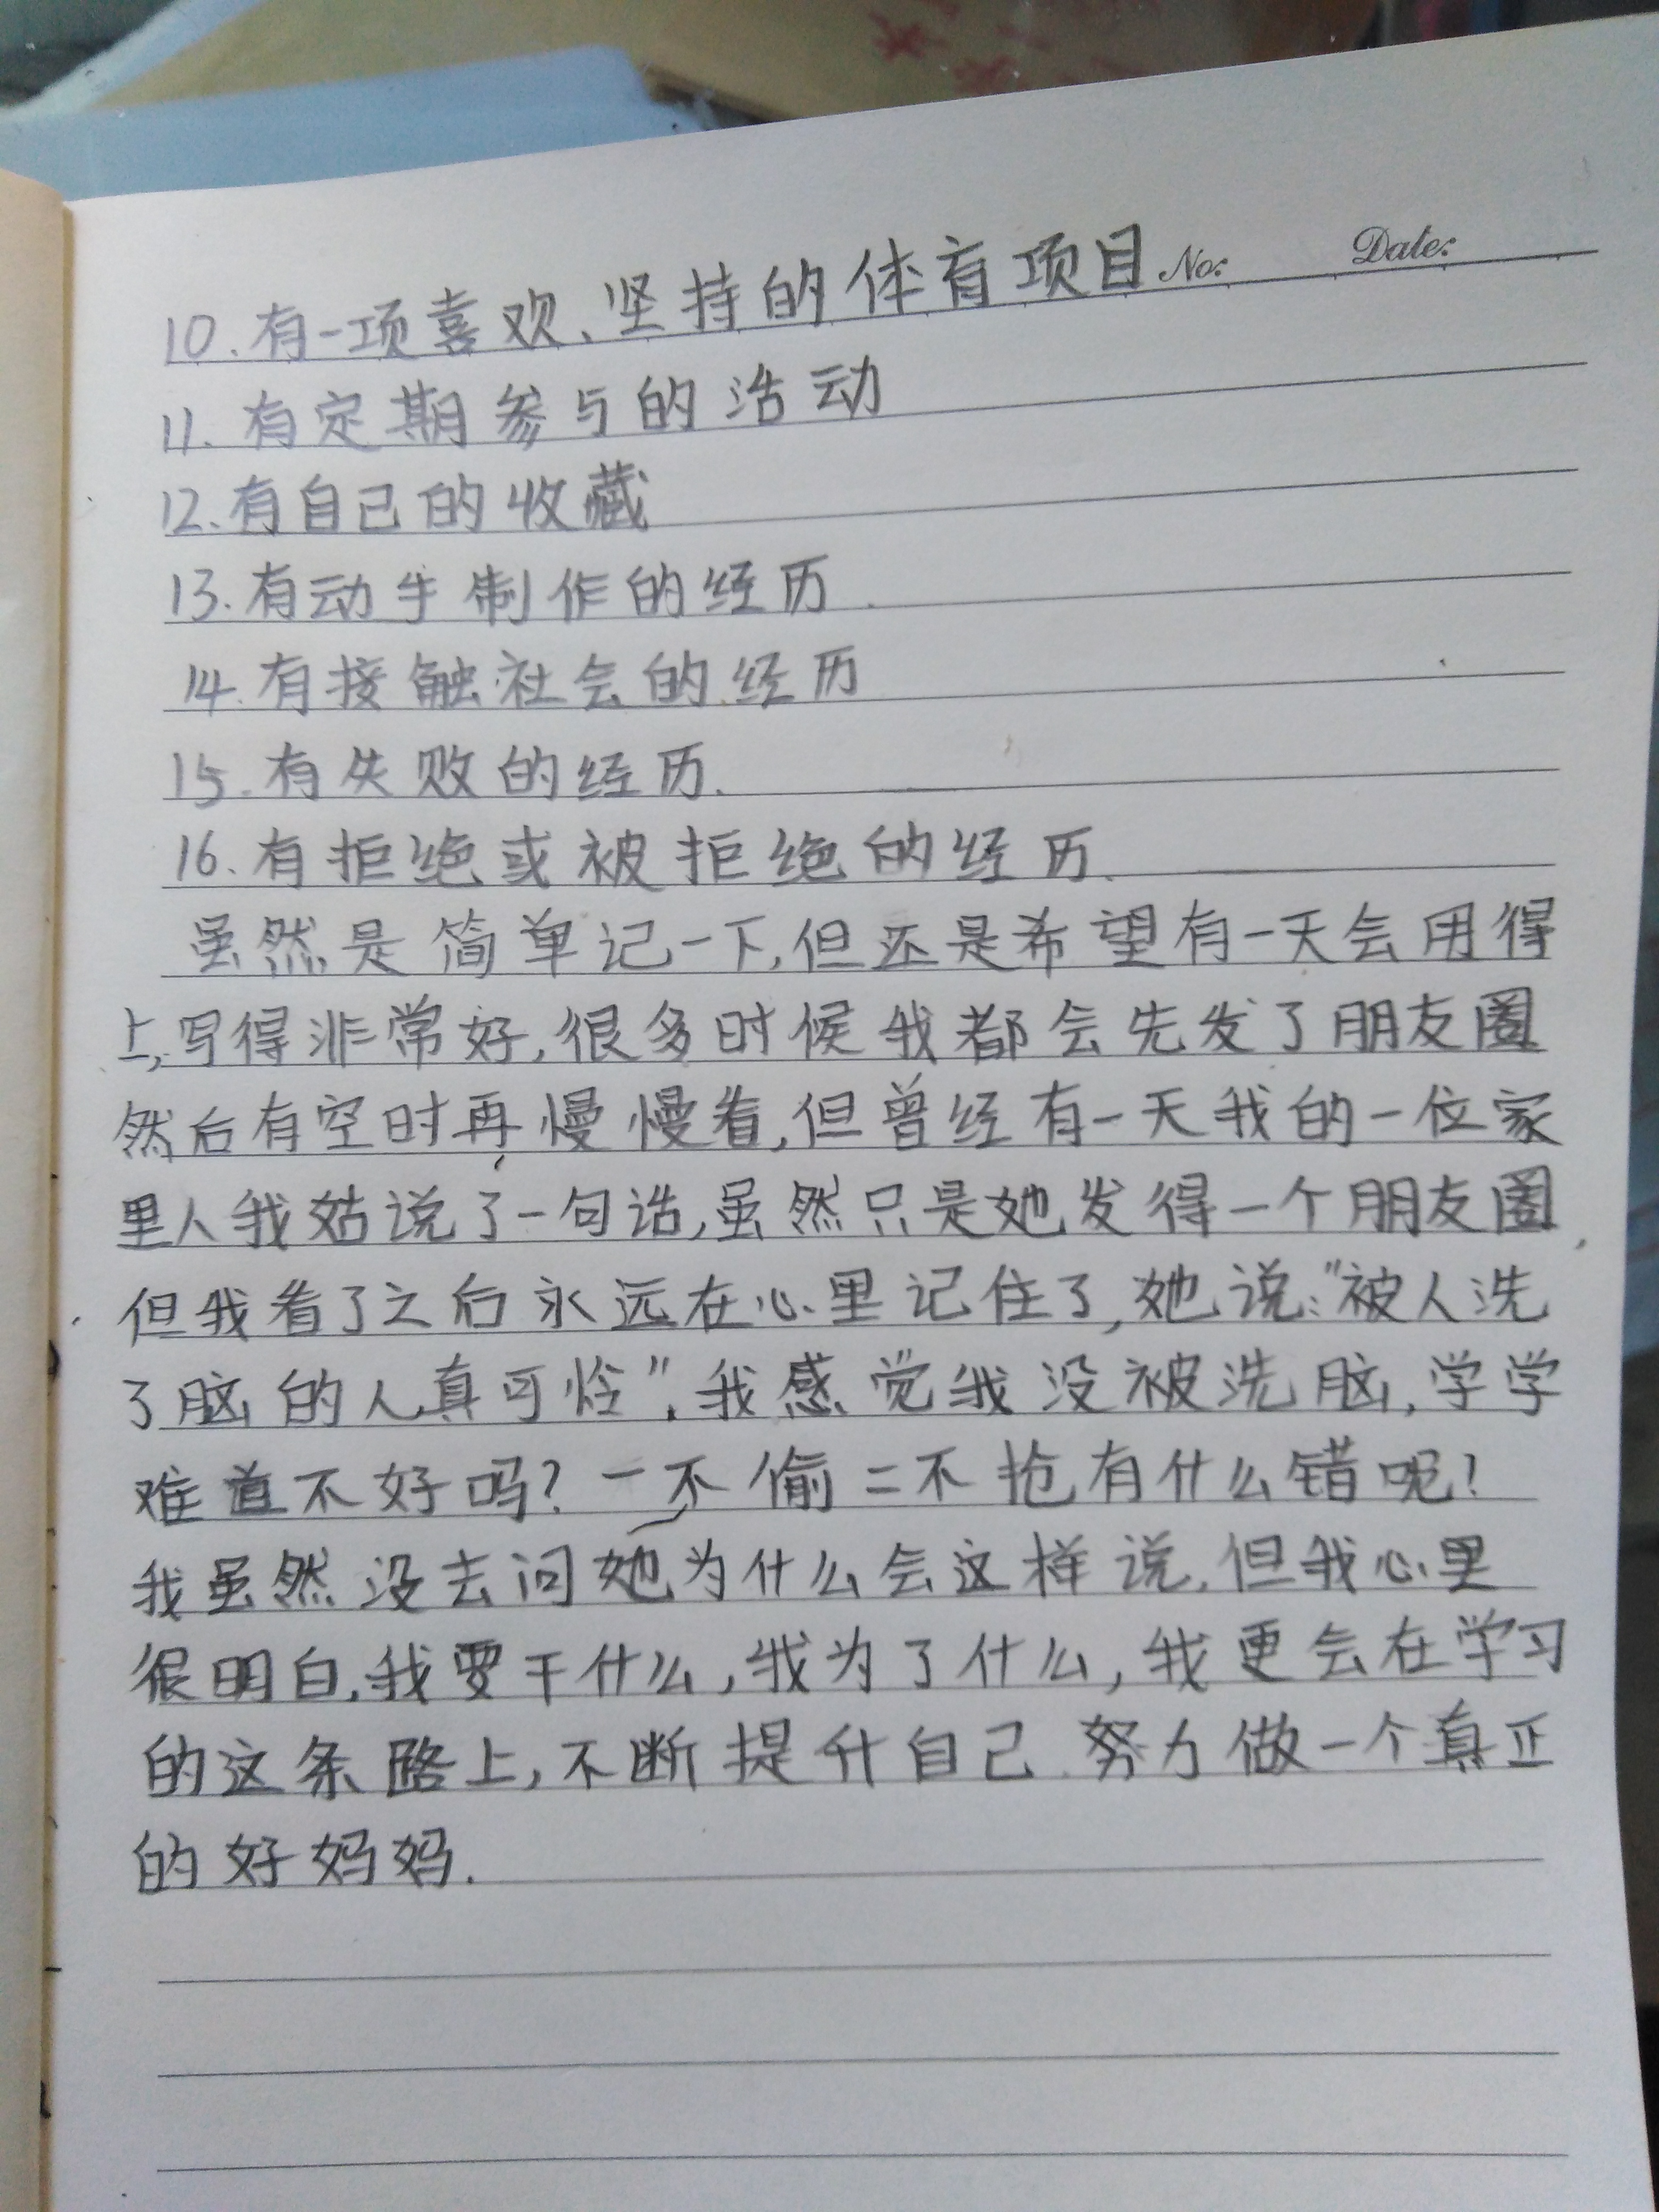 No: Date:
10.有一项喜欢、坚持的体育项目
11.有定期参与的活动
12.有自己的收藏
13.有动手制作的经历.
14.有接触社会的经历
15.有失败的经历.
16.有拒绝或被拒绝的经历.
虽然是简单记一下,但还是希望有一天会用得
上,写得非常好,很多时候我都会先发了朋友圈
然后有空时再慢慢看,但曾经有一天我的一位家
里人我姑说了一句话,虽然只是她发得一个朋友圈,
但我看了之后永远在心里记住了,她说:"被人洗
了脑的人真可怪".我感觉我没被洗脑,学学
难道不好吗?一不偷二不抢有什么错呢!
我虽然没去问她为什么会这样说,但我心里
很明白,我要干什么,我为了什么,我更会在学习
的这条路上,不断提升自己.努力做一个真正
的好妈妈.